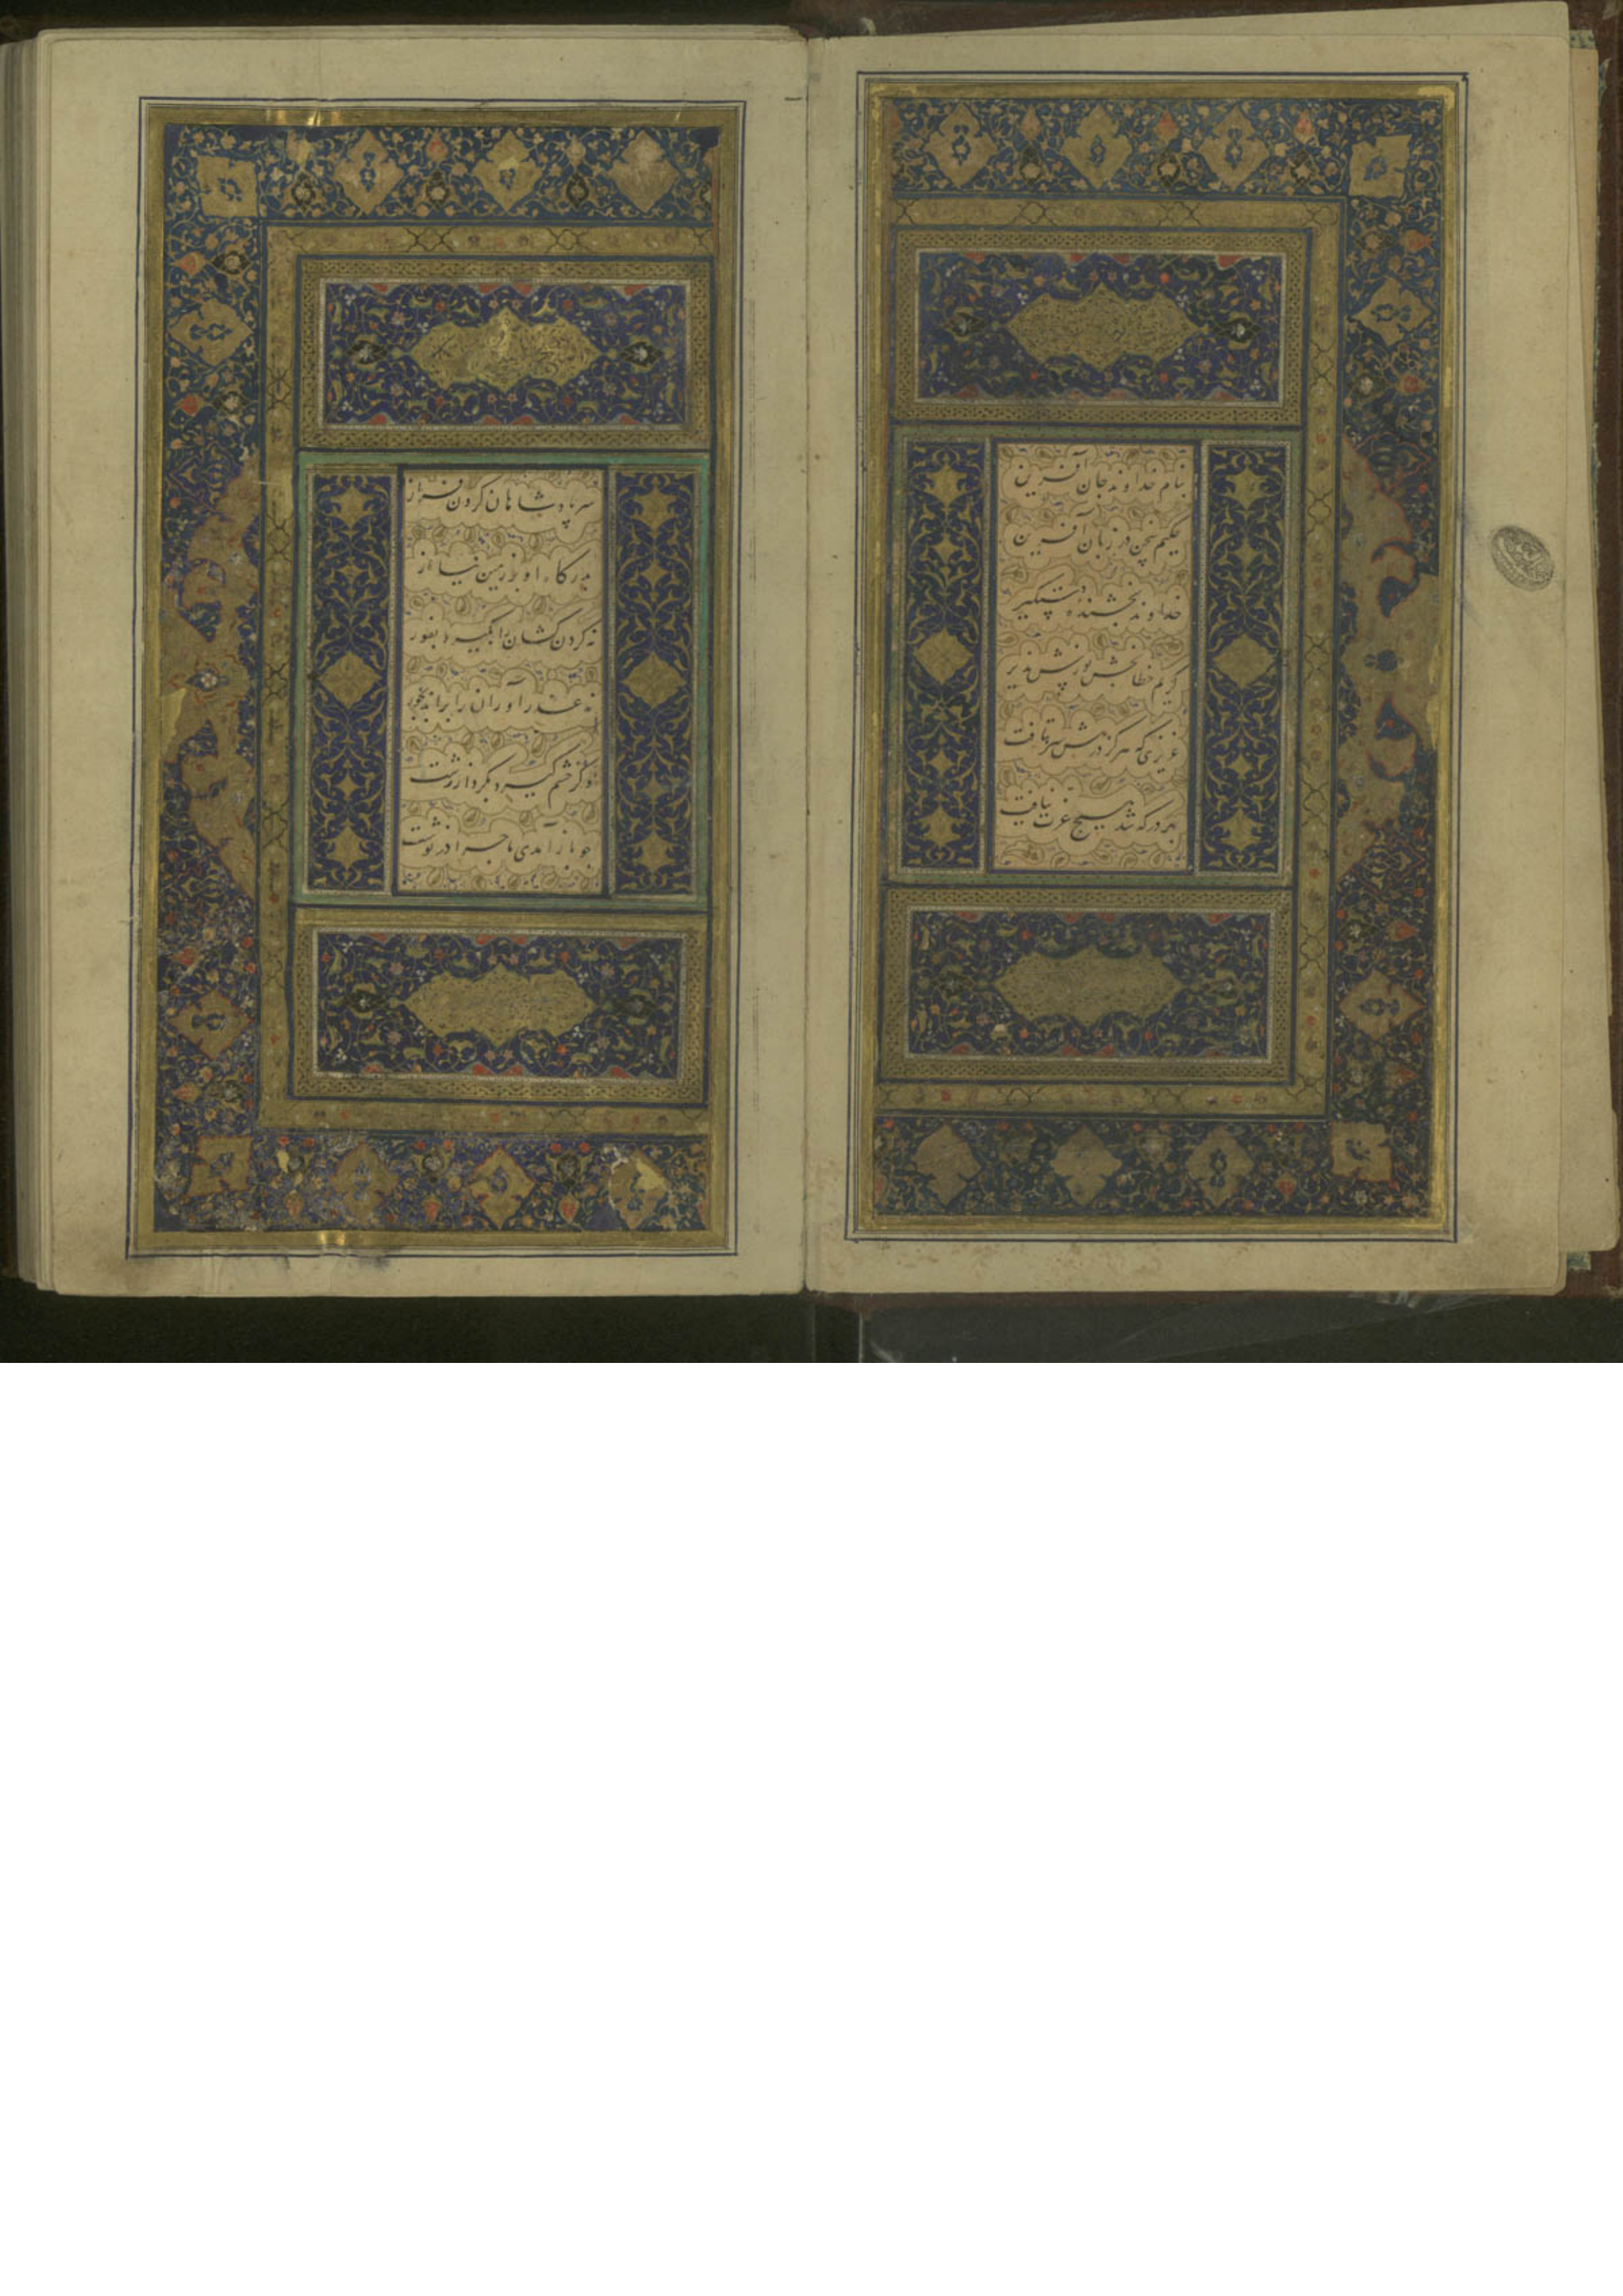 بنام خداوند جان آفرین
حکیم سخن در زبان آفرین
خداوند بخشنده دستگیر
کریم خطا بخش پوزش پذیر
عزیزی که هرگز درش سر بتافت
بهر در که شد هیچ عزت نیافت
سر پادشاهان گردن فراز
بدرگاه او بر زمین نیاز
نه گردن کشان را بگیرد بفور
نه عذرآوران را براند بجور
وگر خشم گیرد بکردار زشت
چو باز آمدی ماجرا در نوشت